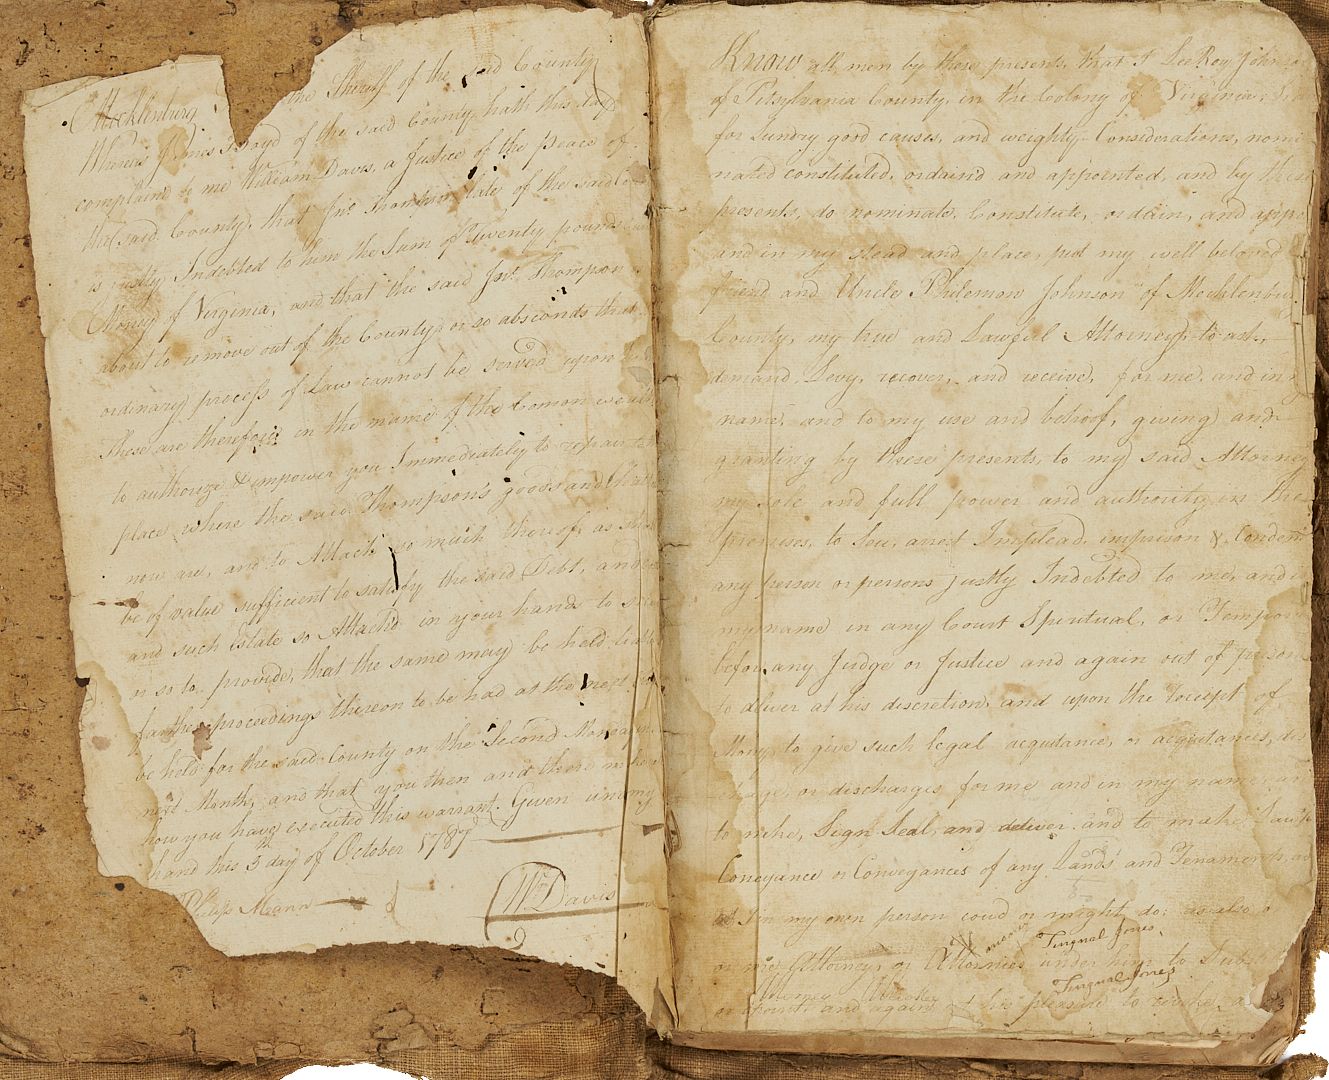 Mecklenburg the Sheriff of the said County
Whereas James Boyd of the said County, hath this day
complaind to me William Davis, a Justice of the peace of
the said County, that Jno. Thompson late of the said
is justly Indebted to him the Sum of Twenty pounds
Money of Virginia, and that the said Jno. Thompson
about to remove out of the County, or so absconds that
ordinary process of Law cannot be served upon
These are therefore in the name of the Comon wealth
to authorize & impower you Immediately to repair to
place where the said Thompson's goods and
now are, and to Attach so much thereof, as
be of value sufficient to satisfy the said Debt, and
and such Estate so Attach'd in your hands to
or so to provide, that the same may be held liable
farther proceedings thereon to be had at the next
be held for the said County on the Second Monday in
next Month, and that you then and there make
how you have executed this warrant. Given under my
hand this 3d day of October 1787
Wm. Davis
Philip Mann
Know all men by these presents, that I LeeRoy Johnson
of Pitsylvania County, in the Colony of Virginia,
for Sundry good causes, and weighty Considerations, nomi
nated constituted, ordaind and appointed, and by these
presents, do nominate, Constitute, ordain, and appo
and in my stead and place, put my well beloved
friend and Uncle Philemon Johnson of Mecklenbur
County, my true and Lawful Attorney, to ask,
demand, Levy, recover, and receive, for me, and in
name, and to my use and behoof, giving and
granting by these presents, to my said Attorney
my sole and full power and authority in the
premises, to Sue, arrest Implead, imprison & Condem
any person or persons justly Indebted to me, and in
my name in any Court Spiritual, or Tempor
before any Judge or Justice and again out of prison
to deliver at his discretion, and upon the receipt of
Mony, to give such legal acquitance, or acquitances, dis
charge, or discharges for me and in my name, and
to make, Sign Seal, and deliver and to make Lawf
Conveyance or Conveyances of any Lands and Tenaments, as
as I in my own person coud or might do; as also o
Tingnal Jones,
or more Attorney or Attornies under him to Subst
Tingnal Jones
or apoint and again at his pleasure to revoke, a